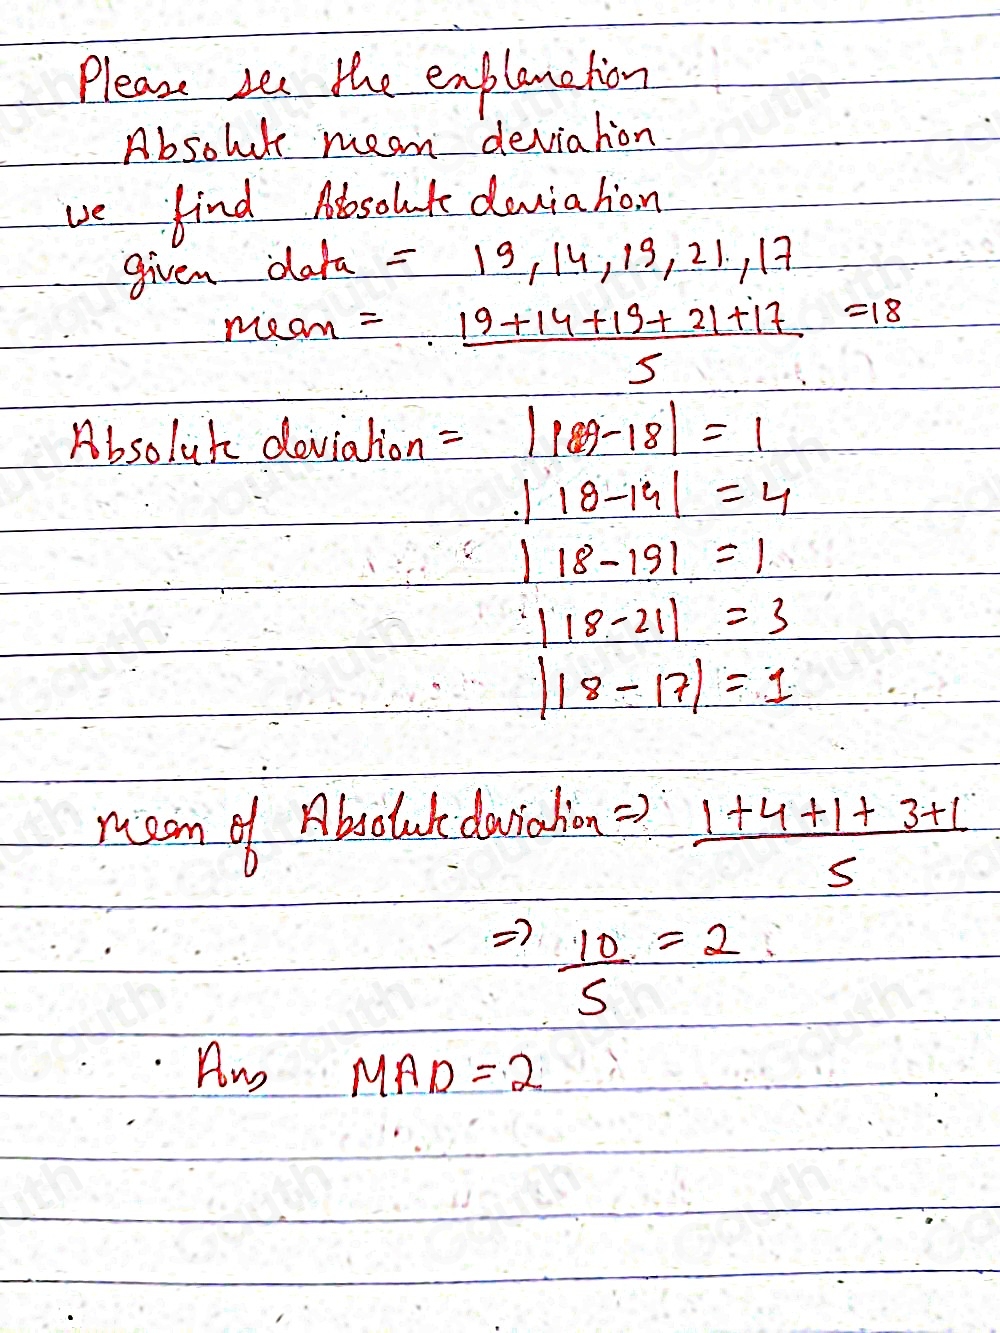 Please see the explanation
Absolute mean deviation
we find Absolute deviation
given data = 19, 14, 19, 21, 17
mean = 19+14+19+21+17 =18
5
Absolute deviation = |19-18| = 1
|18-14| = 4
|18-19| = 1
|18-21| = 3
|18-17| = 1
mean of Absolute deviation ⇒ 1+4+1+3+1
5
⇒ 10 = 2
5
Ans MAD = 2